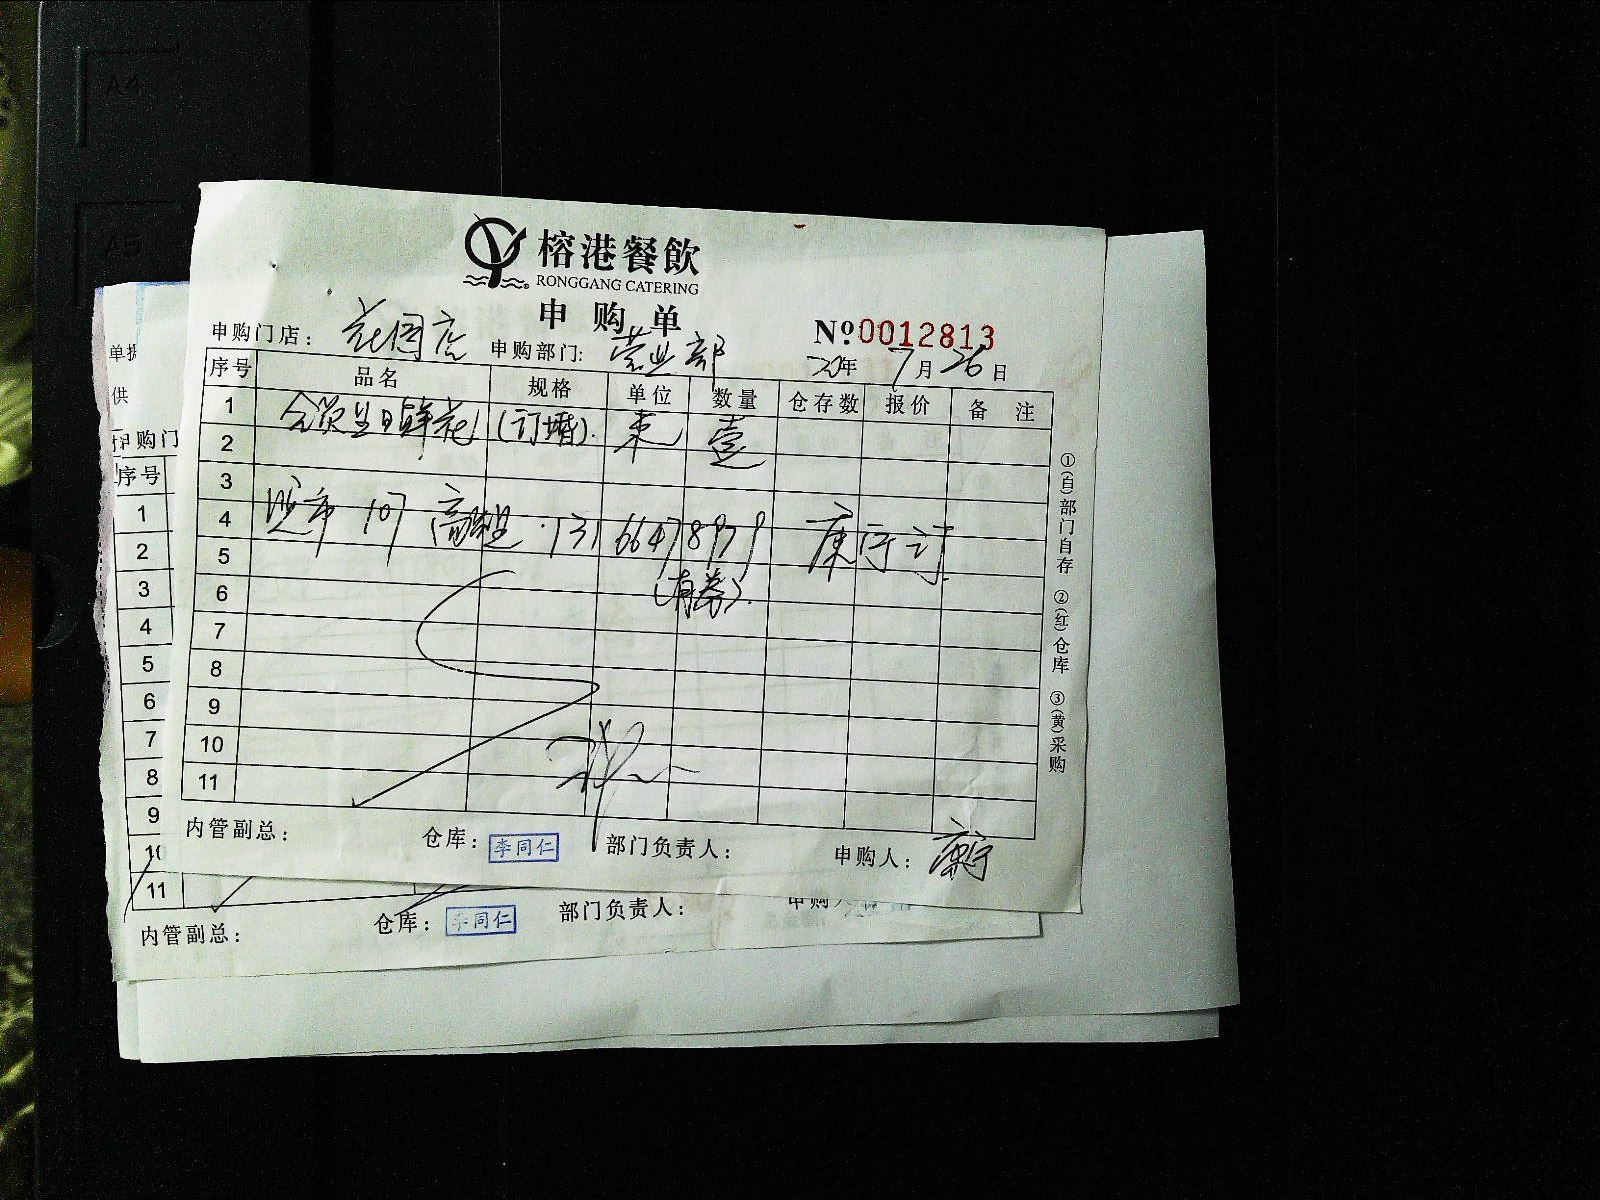 A4
A5
榕港餐飲
RONGGANG CATERING
申购单
申购门店： 花园店 申购部门： 营业部 №0012813
20年 7月 26日
序号 品名 规格 单位 数量 仓存数 报价 备注
1 生日鲜花 (订婚). 束 壹
2
3
4 107 高 13166478979 康宁订
5
6 (有券).
7
8
9
10
11
内管副总： 仓库： 李同仁 部门负责人： 申购人： 康宁
①(白)部门自存 ②(红)仓库 ③(黄)采购
单据
供
申购门
序号
1
2
3
4
5
6
7
8
9
10
11
内管副总： 仓库： 李同仁 部门负责人： 申购人